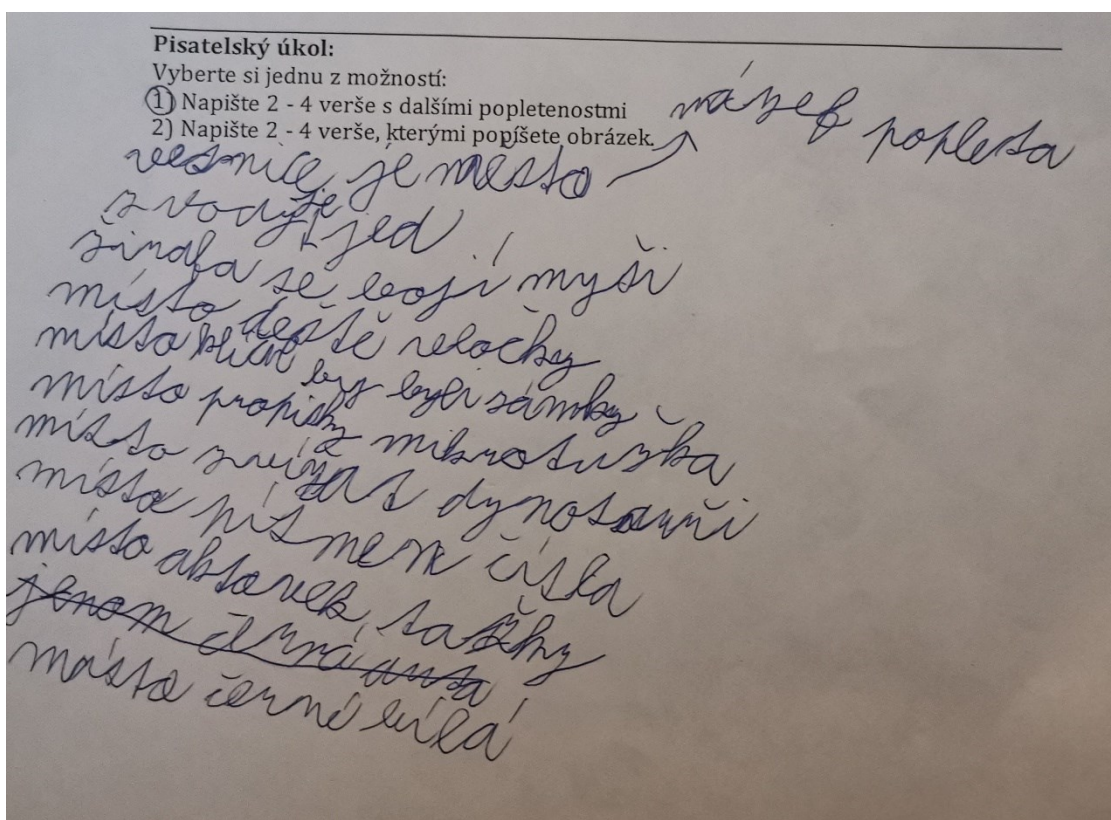 Pisatelský úkol:
Vyberte si jednu z možností:
1) Napište 2 - 4 verše s dalšími popletenostmi
2) Napište 2 - 4 verše, kterými popíšete obrázek.
název popleta
vesnice je město
z vody je jed
žirafa se bojí myši
místo deště
místo by byli zámky
místo propisky mikrotužka
místo zvířat dynosauři
místo písmen čísla
místo aktovek tašky
jenom černá auta
místo černé bílá